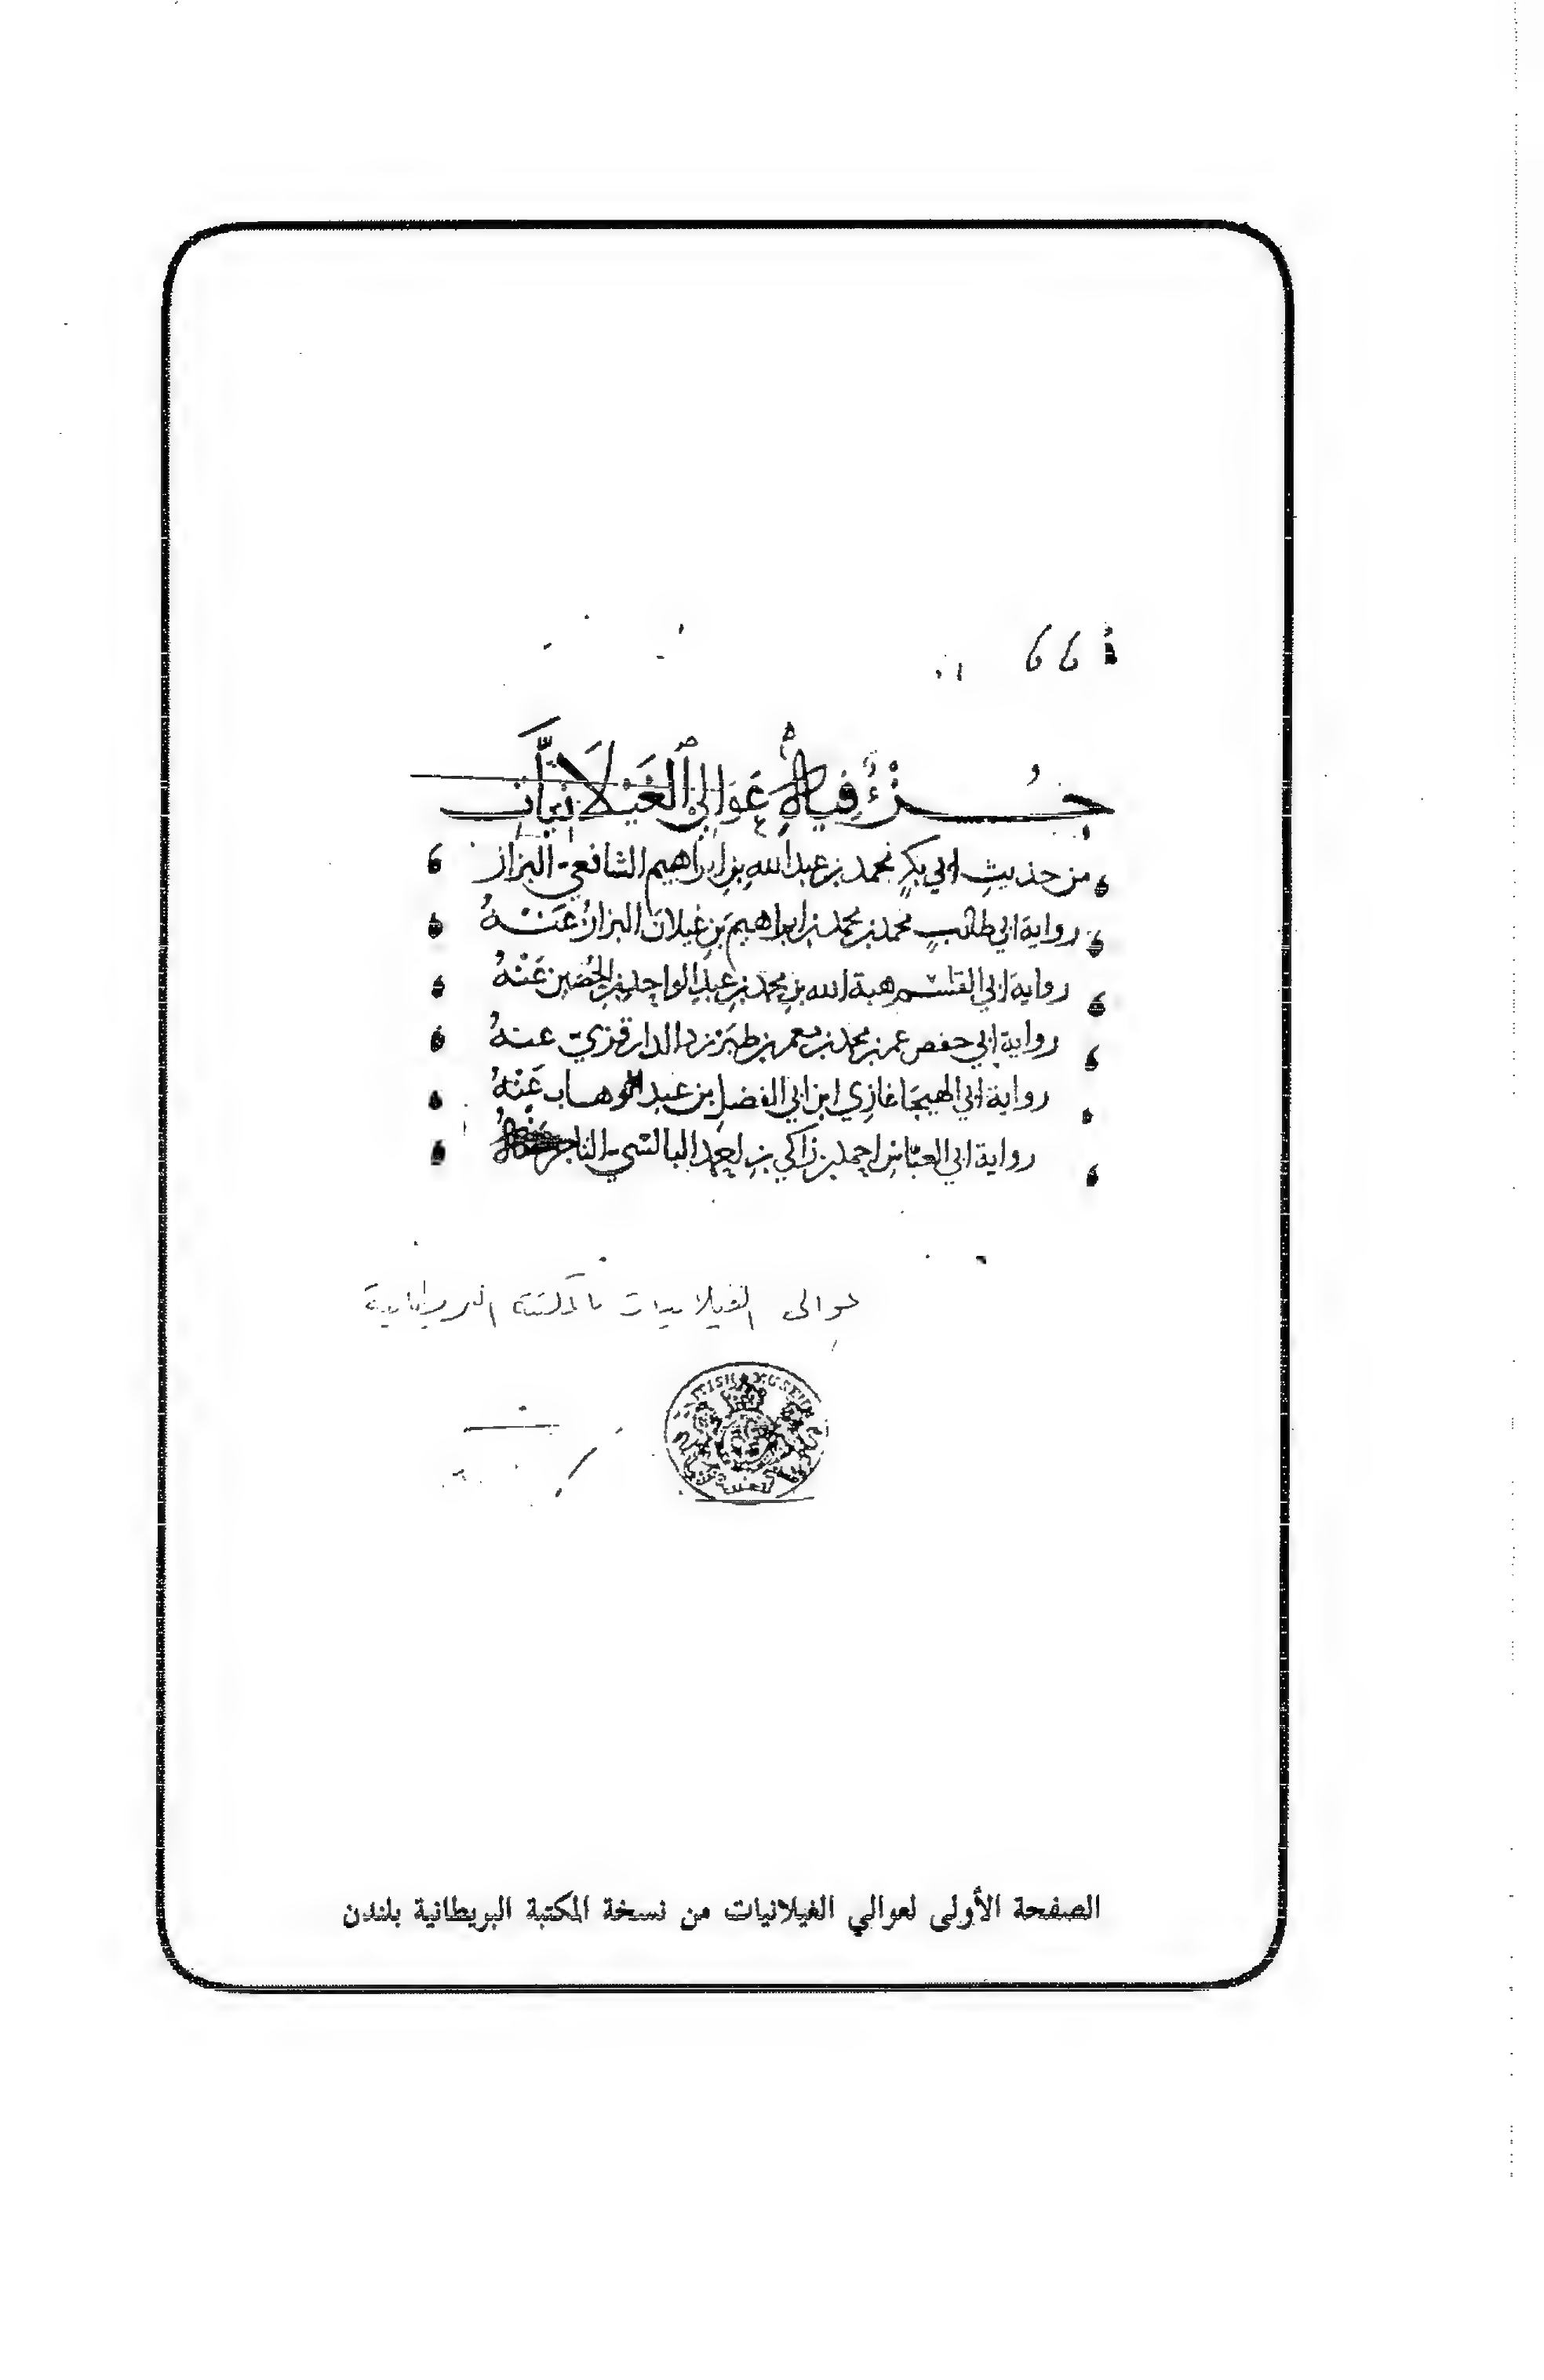 66
جُزْءٌ فِيهِ عَوَالِي الغَيْلَانيَّات
من حديثِ ابي بكرٍ محمد بن عبد الله بن ابراهيم الشافعي البزاز
رواية ابي طالبٍ محمد بن محمد بن ابراهيم بن غيلان البزاز عَنْهُ
رواية ابي القاسم هبة الله بن محمد بن عبد الواحد بن الحُصَين عَنْهُ
رواية ابي حفص عمر بن محمد بن معمر بن طبرزد الدارقزي عنهُ
رواية ابي الهيجا غازي ابن ابي الفضل بن عبد الوهاب عَنْهُ
رواية ابي العبّاس احمد بن زاكي بن البالسي التاجر
عوالى الغيلانيات بالمكتبة البريطانية
BRITISH MUSEUM
الصفحة الأولى لعوالي الغيلانيات من نسخة المكتبة البريطانية بلندن